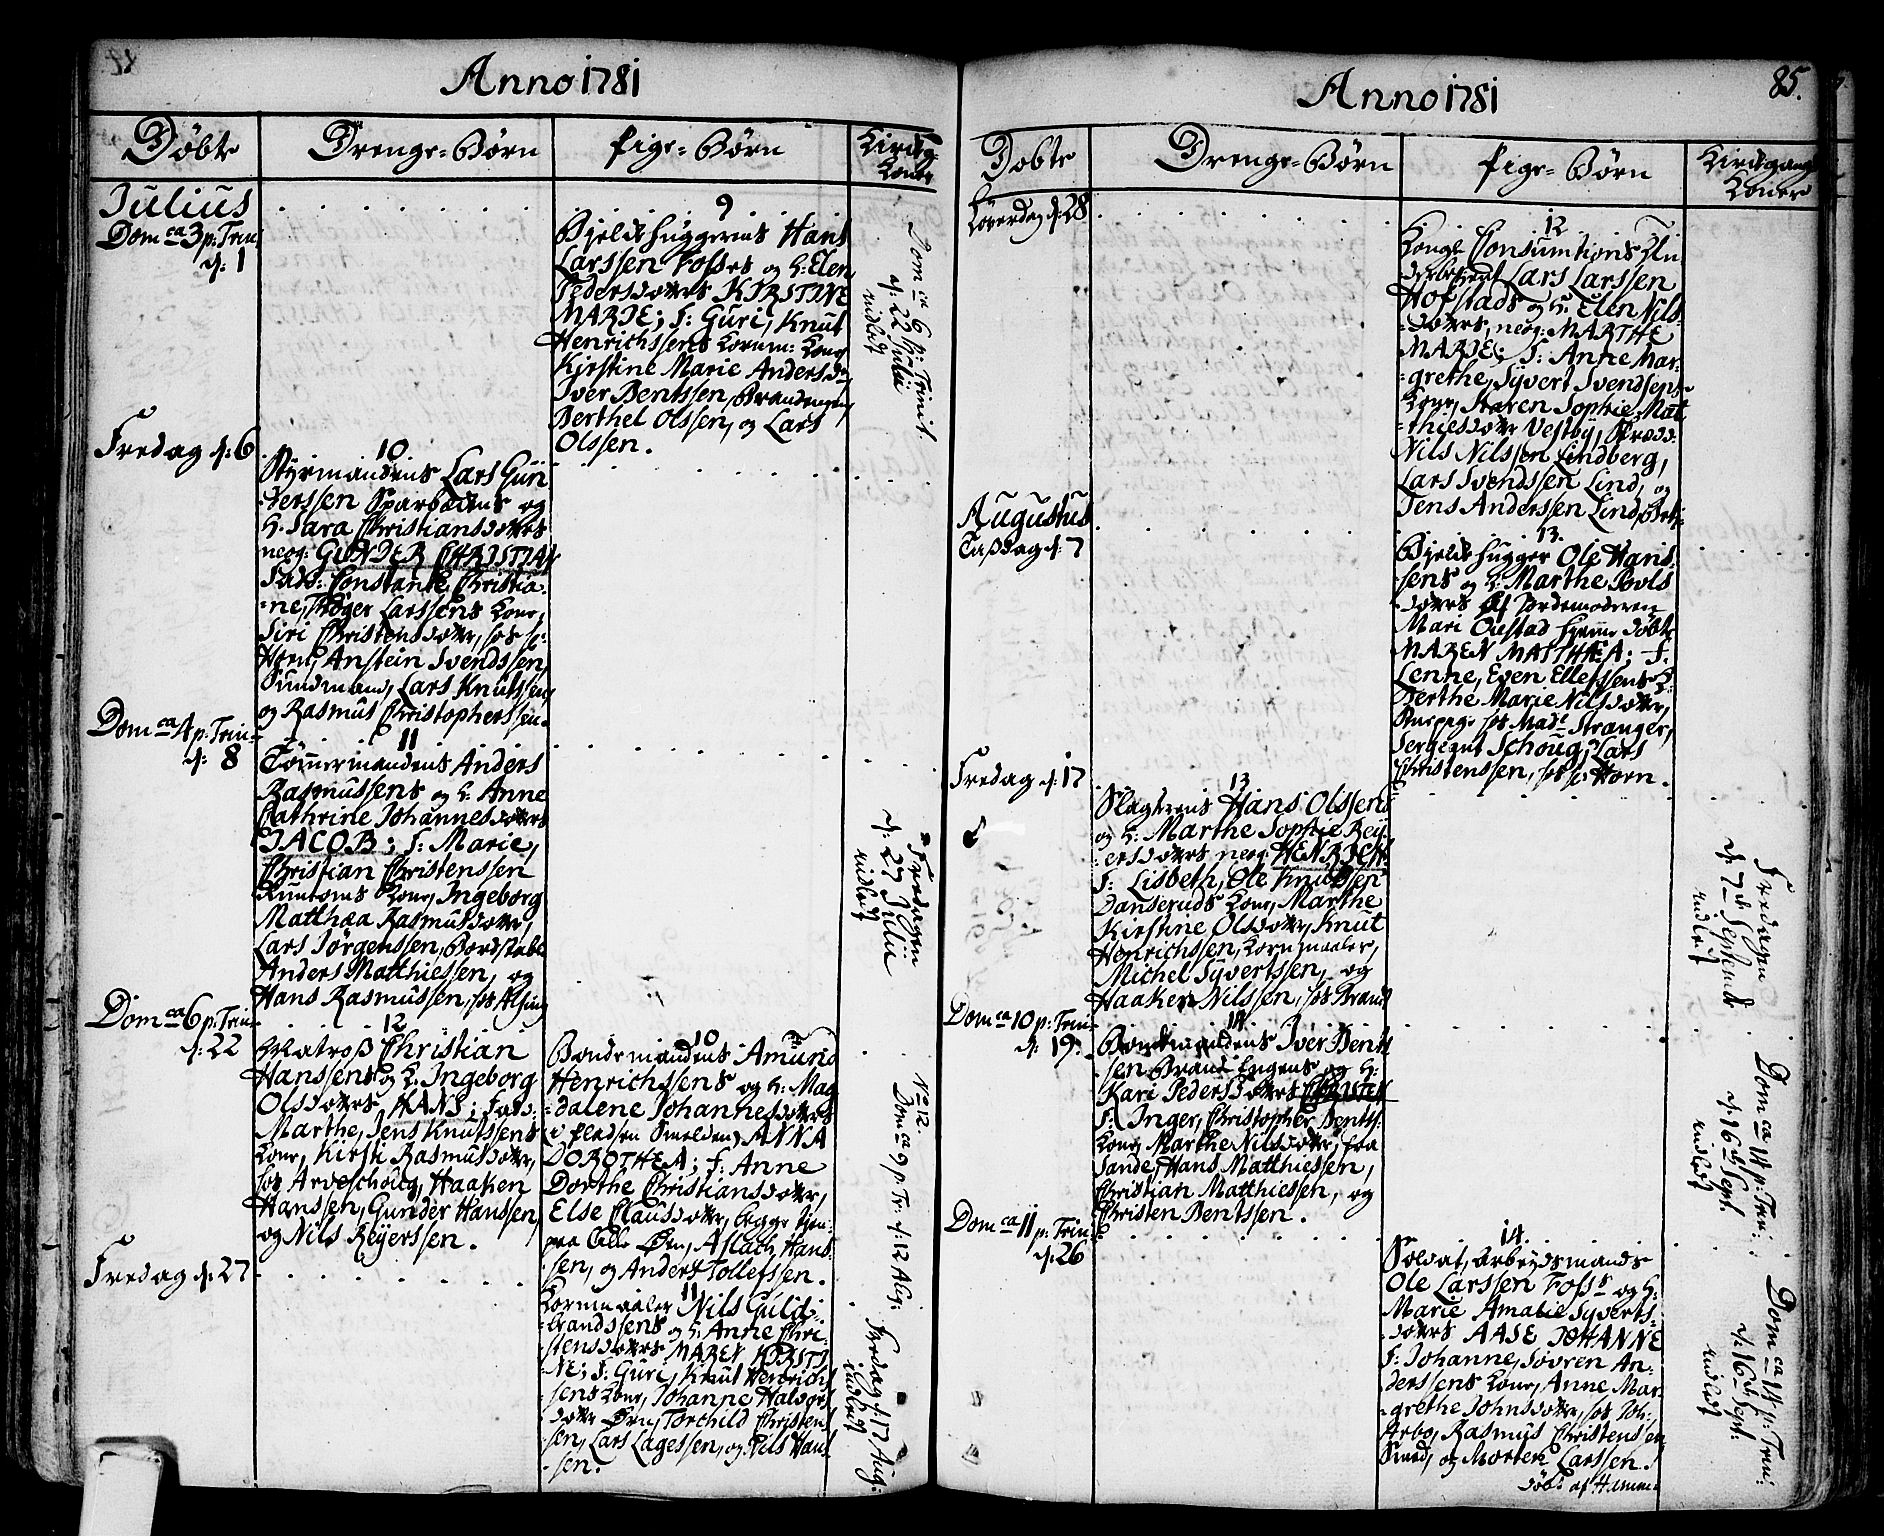 Anno 1781
Döbte
Drenge=Börn
Pige=Börn
Kirkeg.
Koner
Julius
Dom ca 3 p: Trin.
d: 1
9
Bjelkehuggerens Hans
Larssen Fosses og H: Elen
Pedersdatters KIRSTINE
MARIE; F: Guri, Knut
Henrichssens Kornm: Kone
Kirstine Marie Anders dr
Iver Bentssen, Brandengen,
Berthel Olssen, og Lars
Olssen.
Dom ca 6 p: Trinit.
d: 22 Julii
indledt
Fredag d: 6
10
Styrmandens Lars Gun
derssen Sparbæcks og
H. Sara Christiansdatters
neog: GUNDER CHRISTIAN
Fadd: Constante Christia-
=ne, Röger Larssens Kone,
Siri Christensdatter, hos hr:
Horn, Anstein Svendssen,
Sundmand, Lars Knutssen,
og Rasmus Christopherssen.
Dom ca 4 p: Trin=
d: 8
11
Tömmermandens Anders
Rasmussens og H: Anne
Cathrine Johannesdatters
JACOB; F: Marie,
Christian Christenssen
Kone, Ingeborg
Matthæa Rasmusdatter,
Lars Jörgenssen,
Anders Matthiessen, og
Hans Rasmussen, hos
Fredagen
d: 27 Julii
indledt
Dom ca 6 p: Trin=
d: 22
12
Matros Christian
Hanssens og H. Ingeborg
Olsdatters HANS; Fadd:
Marthe, Jens Knutssens
Kone, Kirsti Rasmusdatter,
hos Arveschoug, Haaken
Hanssen, Gunder Hanssen,
og Nils Reÿerssen.
10
Bondemandens Amund
Henrichssens og H: Mag
=dalene Johannesdatters
(i Pladsen Smelden) ANNA
DOROTHEA; F: Anne
Dorthe Christiansdatter,
Else Clausdatter, begge tjen:
paa Lille Örn, Aslach Hans
sen, og Anders Tollefssen.
No 12.
Dom ca 9 p: Tr: d: 12 Aug:
Fredag d: 27
11
Kornmaaler Nils Guld:
brandssens og H: Anne Chri-
stensdatters MAREN KIRSTI
NE; F: Guri, Knut Henrich
sens Kone, Johanne Halvors
datter Örn, Torchild Christens
sen, Lars Lagessen, og Nils Hans
sen.
Fredag d: 17 Aug.
indledt
Anno 1781
85.
Dobte
Drenge=Börn
Pige=Börn
Kirkegangs
Koner
Löverdag d: 28
12
Kongl Consumtions Un
derbetient Lars Larssen
Hofstads og H: Elen Nils
datters, neog: MARTHE
MARIE; F: Anne Mar-
grethe, Sÿvert Svendsens
Kone, Karen Sophie Mat
thiesdatter Vestby,
Nils Nilssen Lindberg,
Lars Svendssen Lind, og
Jens Anderssen
Augustus
Tisdag d: 7
13.
Bjelkehugger Ole Hans
sens og H: Marthe Povls
datters af Jordemoderen
Mari Ouestad hjemme döbte
MAREN MATTHEA; F.
Lenne, Even Ellefssens K:
Berthe Marie Nilsdatter,
hos Mad: Stranger,
Sergeant Schoug, Lars
Christenssen, hos hr Horn.
Fredag d: 17
13
Slagterens Hans Olssens
og H. Marthe Sophie Reÿ-
ersdatters neog: HENRICH
F: Lisbeth, Ole Knudssen
Danseruds Kone, Marthe
Kirstine Olsdatter, Knut
Henrichssen, Kornmaaler,
Michel Sÿvertssen, og
Haaken Nilssen, hos Brand
Fredagen
d: 7de Septembr
indledt
Dom ca 10 p: Trin=
d: 19.
14
Bondemandens Iver Bents
sen Brand Engens og H:
Kari Pedersdatters CHRISTEN
F: Inger, Christopher Bents:
Kone, Marthe Nilsdatter, fra
Sande, Hans Matthiessen,
Christian Matthiessen, og
Christen Bentssen.
Dom ca 14 p: Trin:
d: 16de Sept.
indledt
Dom ca 11 p: Trin:
d: 26
14.
Soldat, arbeydsmands
Ole Larssen Foss og H:
Marie Amalie Sÿverts-
datters AASE JOHANNE
F: Johanne, Sövren An-
derssens Kone, Anne Mar-
grethe Johnsdatter, hos Joh:
Arbo, Rasmus Christenssen
Smed, og Morten Larssen.
döbt af Hamme
Dom ca 14 p: Trin:
d: 16de Sept:
indledt